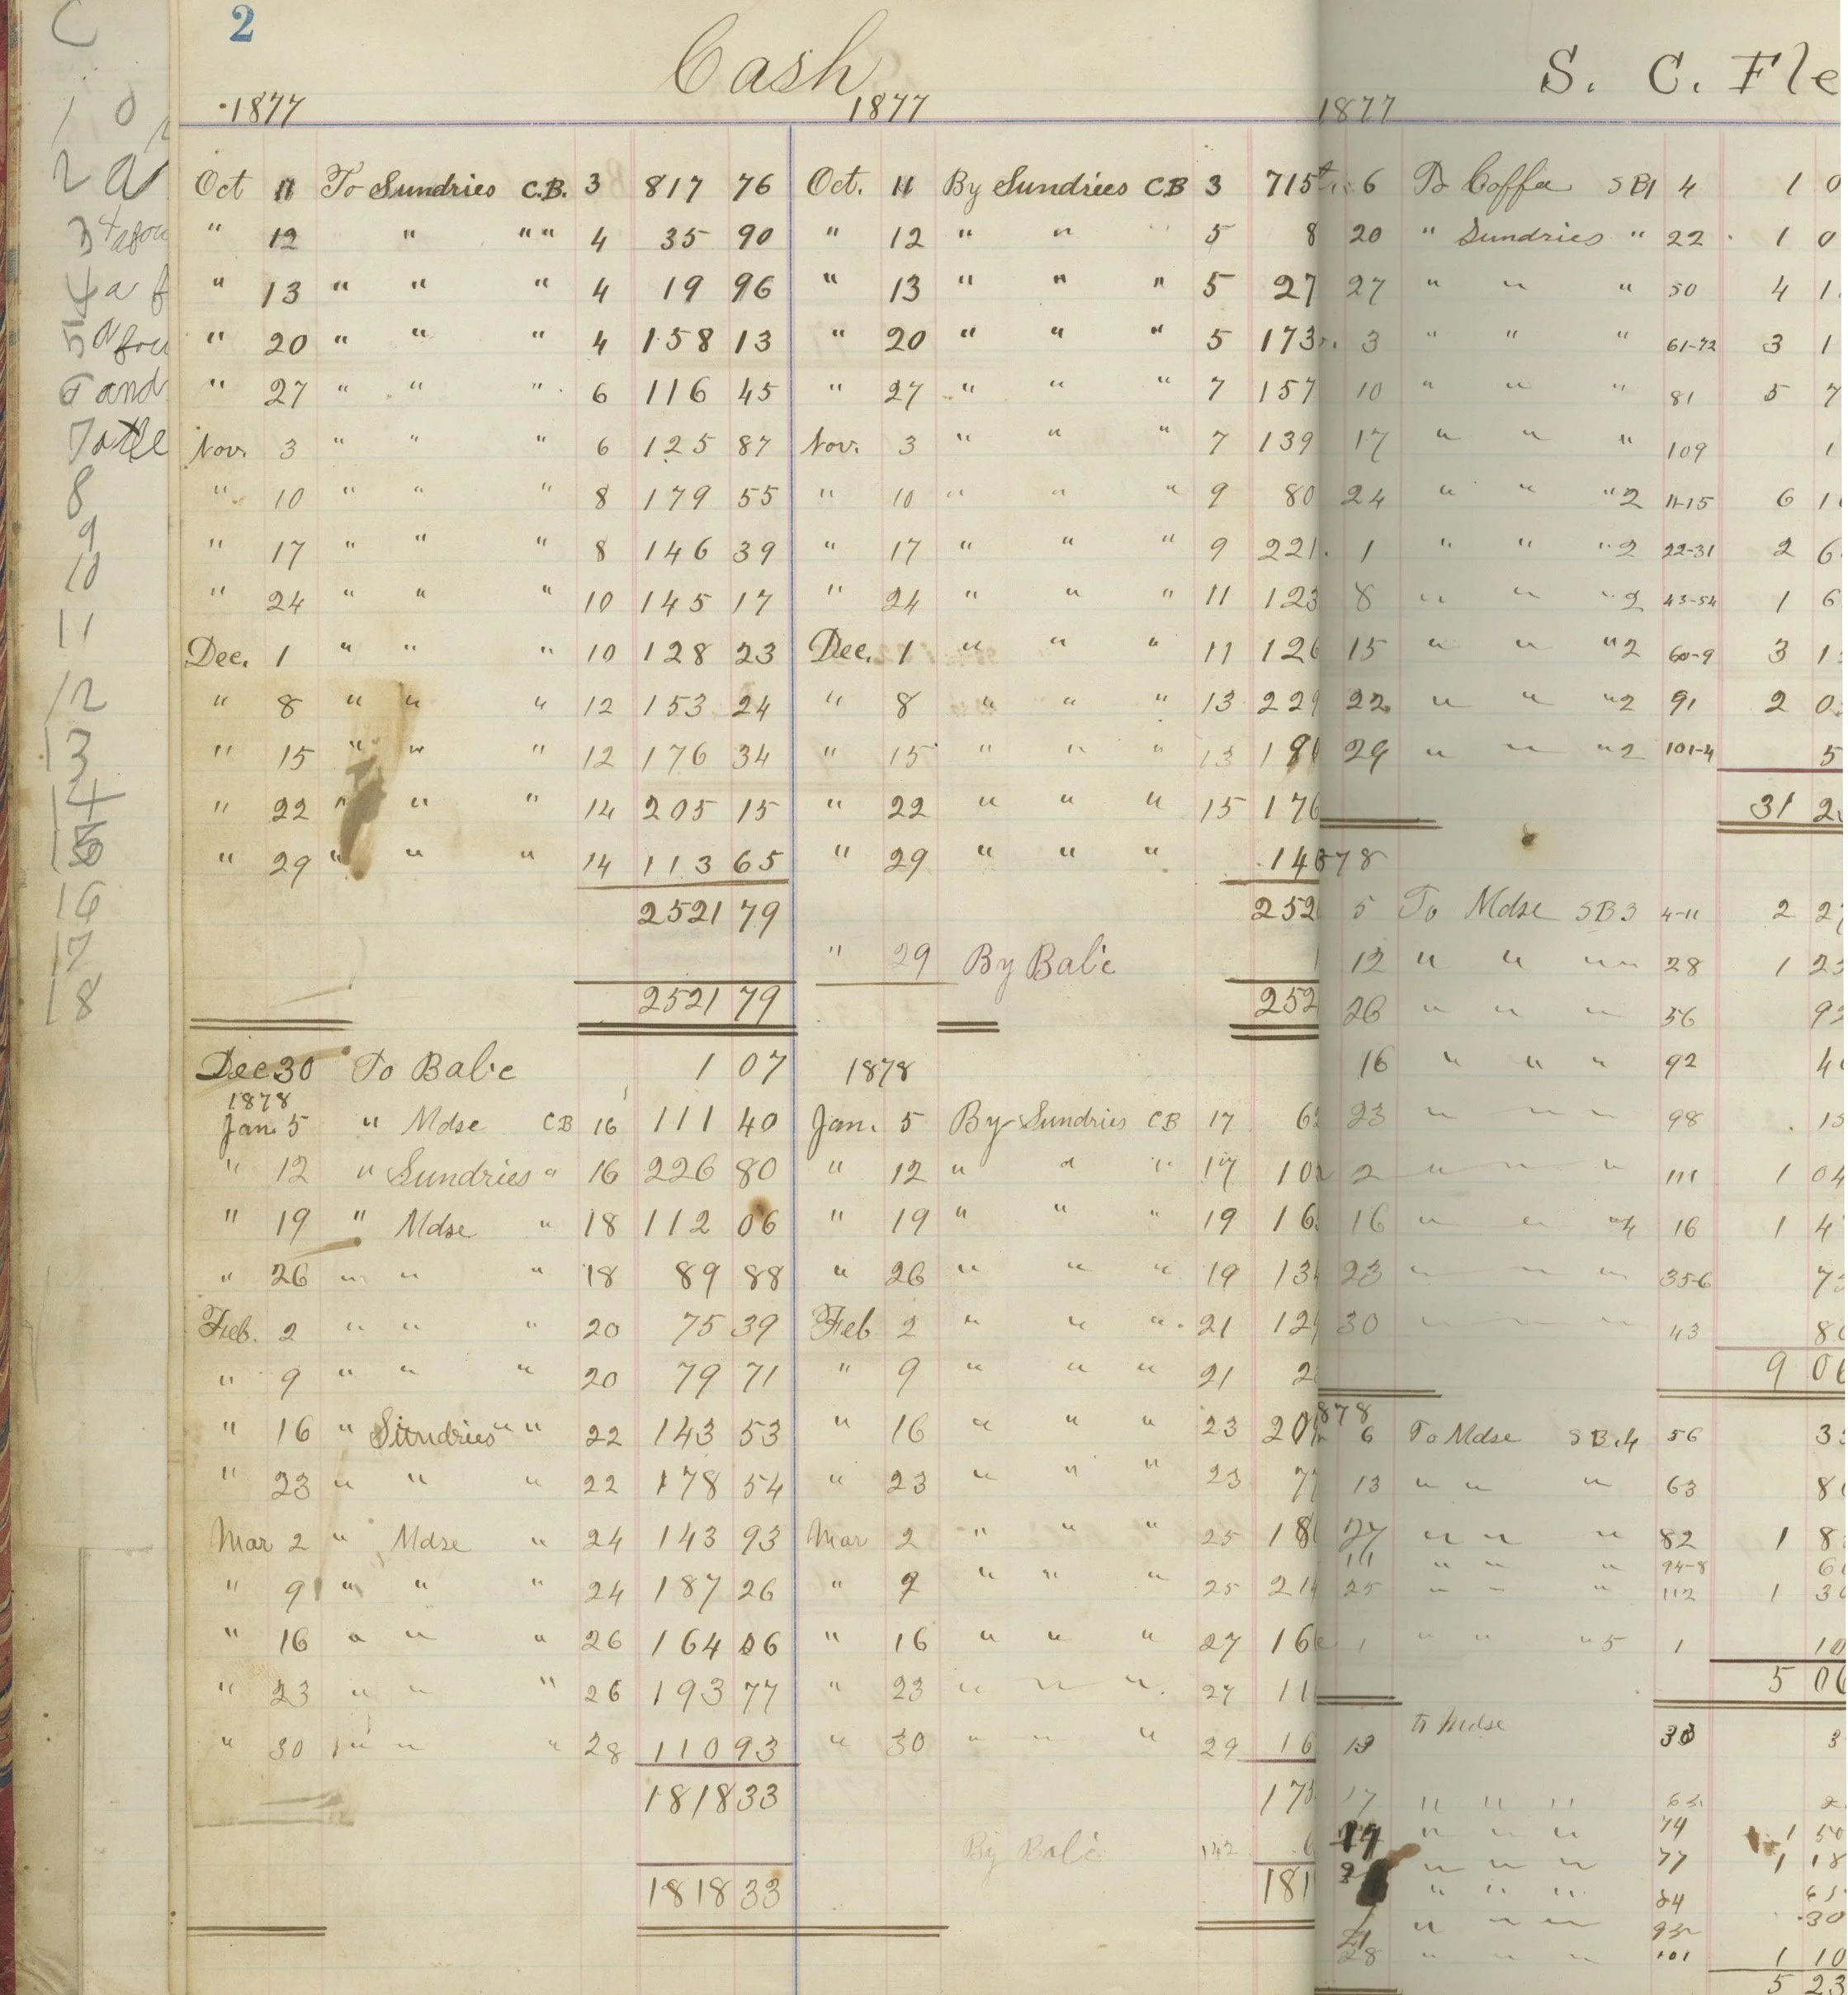 C
2
Cash
S. C. Fle
1877 1877 1877
1 0
2 a
3
4 a f
5
6 and
7
8
9
10
11
12
13
14
15
16
17
18
Oct 11 To Sundries C.B. 3 817 76 Oct. 11 By Sundries CB 3 715
" 12 " " " 4 35 90 " 12 " " " 5 8
" 13 " " " 4 19 96 " 13 " " " 5 27
" 20 " " " 4 158 13 " 20 " " " 5 173
" 27 " " " 6 116 45 " 27 " " " 7 157
Nov. 3 " " " 6 125 87 Nov. 3 " " " 7 139
" 10 " " " 8 179 55 " 10 " " " 9 80
" 17 " " " 8 146 39 " 17 " " " 9 221
" 24 " " " 10 145 17 " 24 " " " 11 123
Dec. 1 " " " 10 128 23 Dec. 1 " " " 11 126
" 8 " " " 12 153 24 " 8 " " " 13 229
" 15 " " " 12 176 34 " 15 " " " 13
" 22 " " " 14 205 15 " 22 " " " 15 176
" 29 " " " 14 113 65 " 29 " " " 146
2521 79 252
" 29 By Bal'c
2521 79 252
Dec 30 To Bal'c 1 07 1878
1878
Jan. 5 " Mdse CB 16 111 40 Jan. 5 By Sundries CB 17 6
" 12 " Sundries " 16 226 80 " 12 " " " 17 10
" 19 " Mdse " 18 112 06 " 19 " " " 19 16
" 26 " " " 18 89 88 " 26 " " " 19 13
Feb. 2 " " " 20 75 39 Feb 2 " " " 21 12
" 9 " " " 20 79 71 " 9 " " " 21 2
" 16 " Sundries " " 22 143 53 " 16 " " " 23 20
" 23 " " " 22 178 54 " 23 " " " 23 7
Mar 2 " Mdse " 24 143 93 Mar 2 " " " 25 18
" 9 " " " 24 187 26 " 9 " " " 25 21
" 16 " " " 26 164 06 " 16 " " " 27 16
" 23 " " " 26 193 77 " 23 " " " 27 11
" 30 " " " 28 110 93 " 30 " " " 29 16
1818 33 175
By Bal'c 142
1818 33 181
6 To Coffee SB1 4 1 0
20 " Sundries " 22 1 0
27 " " " 50 4 1
3 " " " 61-72 3 1
10 " " " 81 5 7
17 " " " 109 1
24 " " " 2 11-15 6 1
1 " " " 2 22-31 2 6
8 " " " 2 43-54 1 6
15 " " " 2 60-9 3 1
22 " " " 2 91 2 0
29 " " " 2 101-4 5
31 2
878
5 To Mdse SB3 4-11 2 2
12 " " " 28 1 23
26 " " " 56 92
16 " " " 92 4
23 " " " 98 15
2 " " " 111 1 04
16 " " " 4 16 1 4
23 " " " 35-6 7
30 " " " 43 80
9 06
878
6 To Mdse SB.4 56 3
13 " " " 63 8
27 " " " 82 1 8
" " " 94-8 6
25 " " " 112 1 30
1 " " " 5 1 10
5 06
to Mdse 3
17 " " " 2
" " " 74 1 50
" " " 77 1 18
" " " 84
" " " 30
28 " " " 101 1 10
5 23